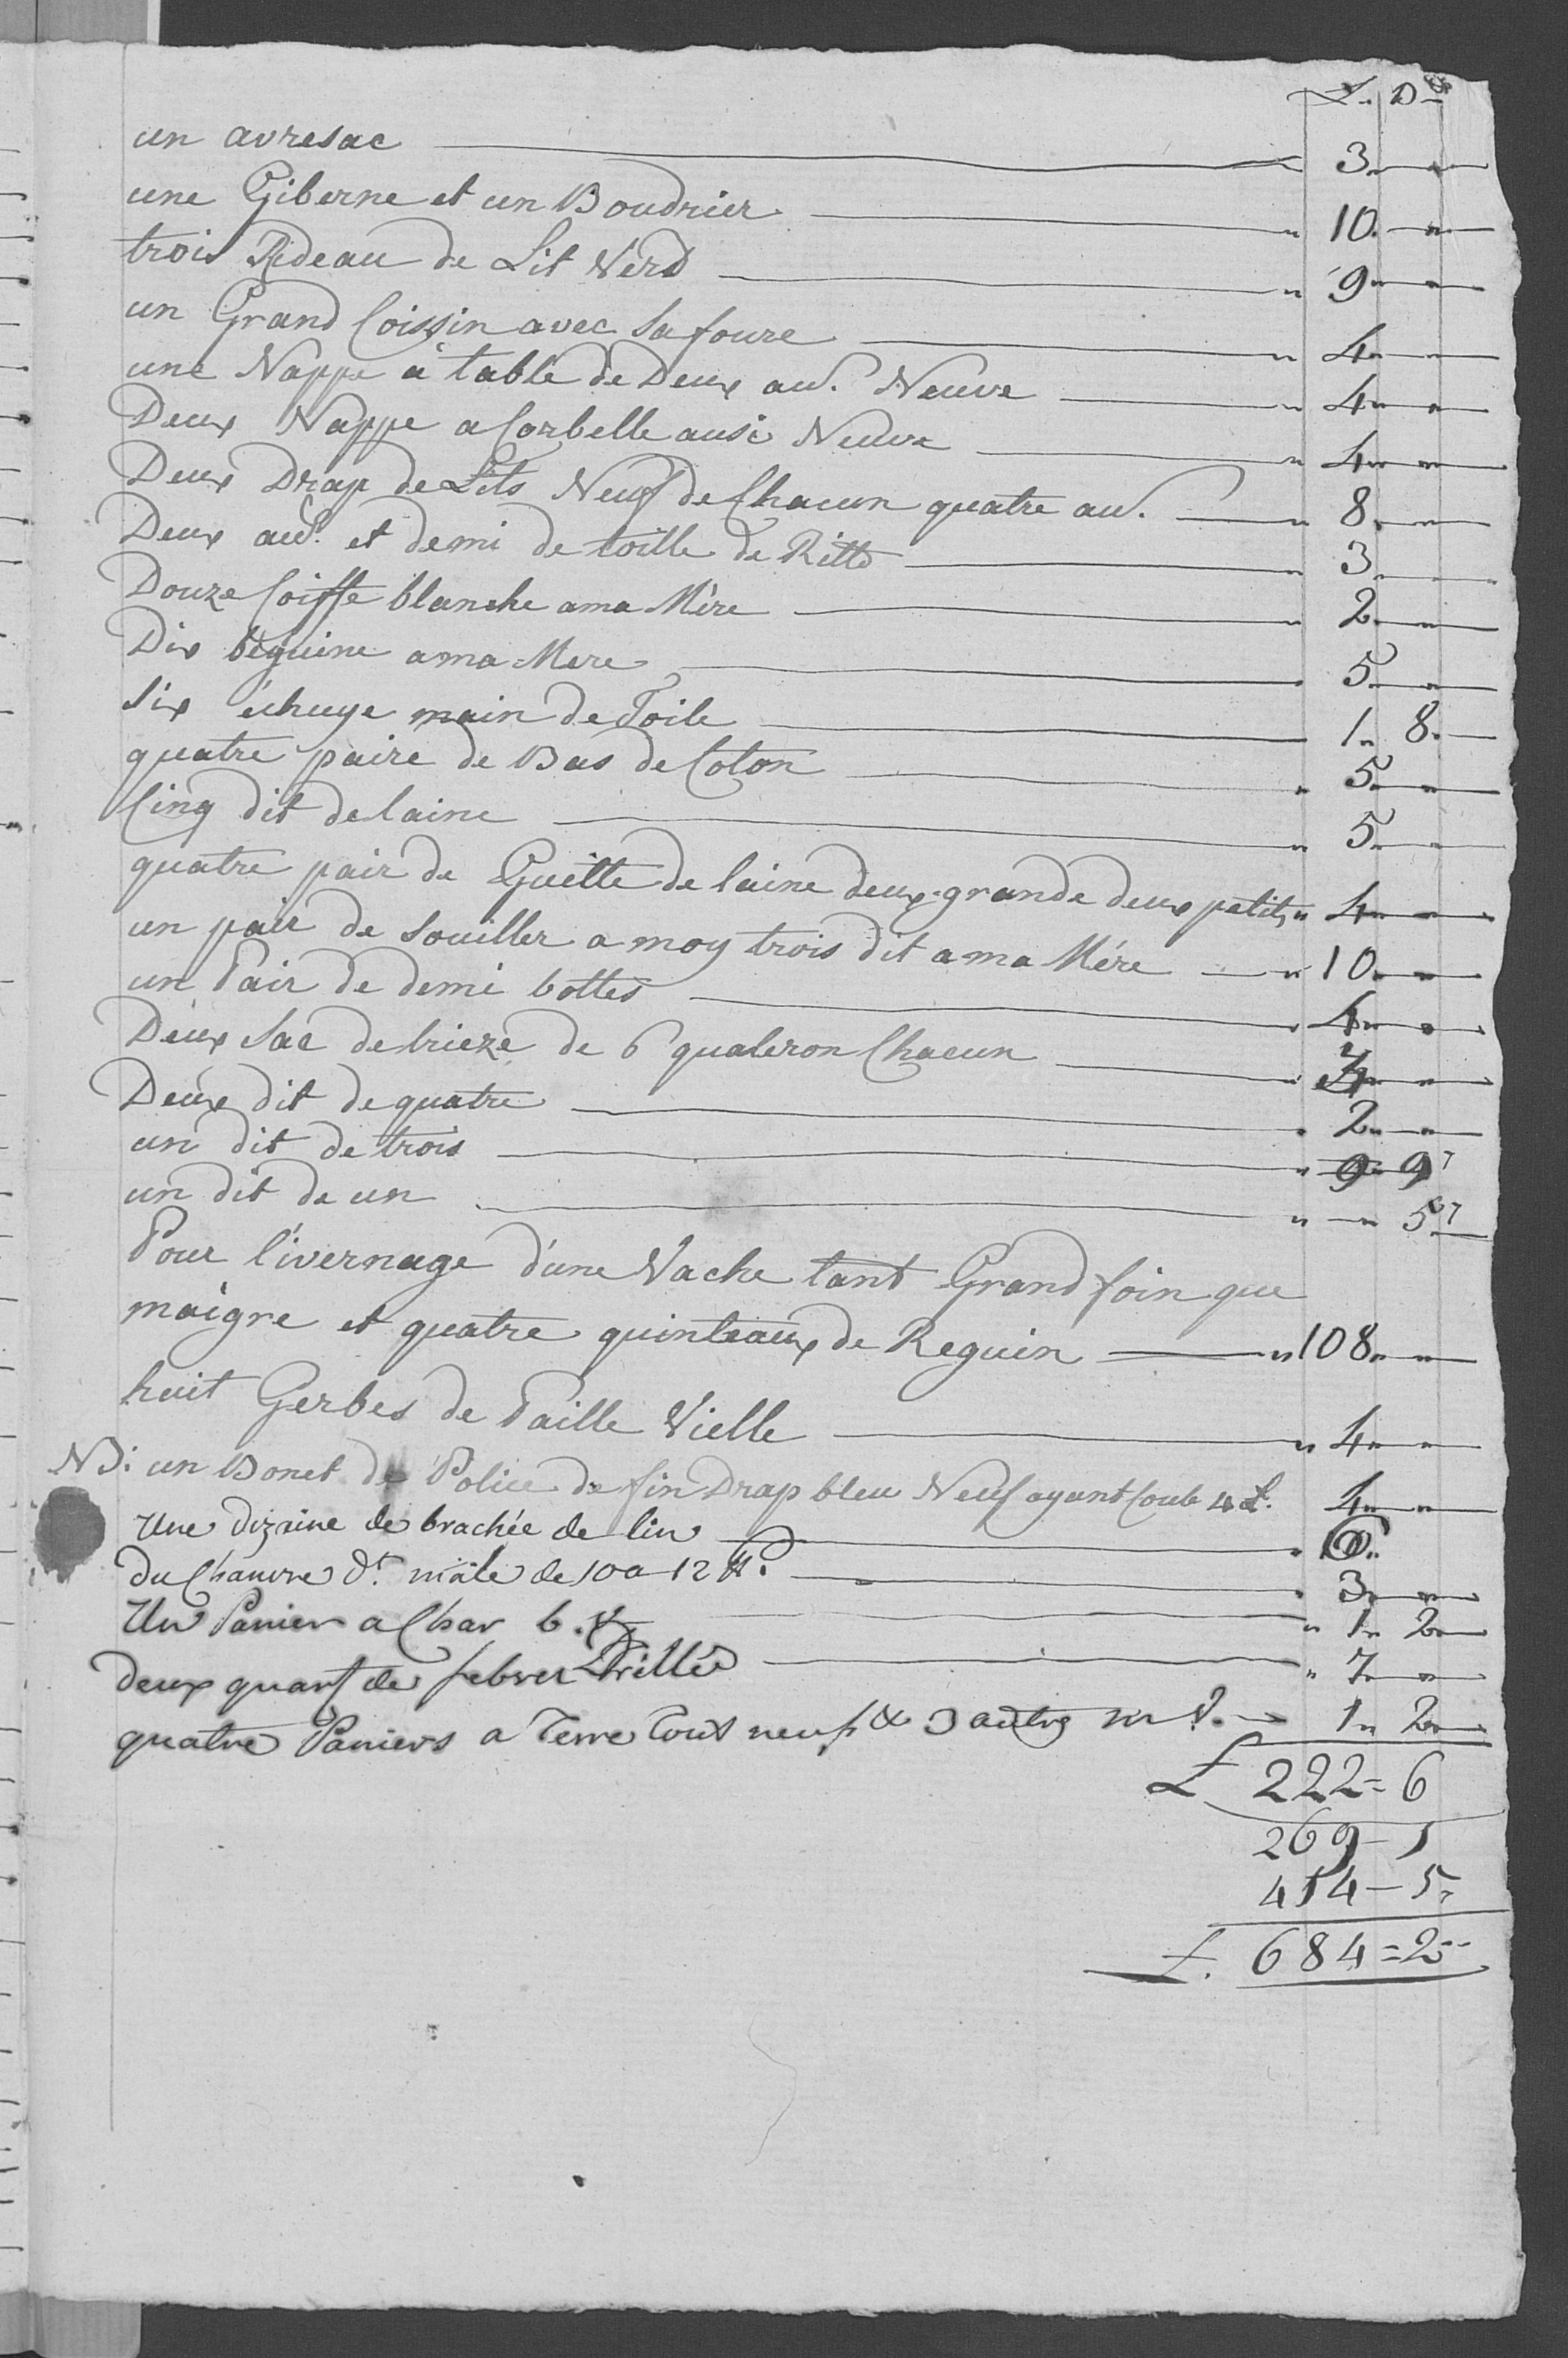 L. D
un avresac 3
une Giberne et un Boudrier 10
trois Rideau de Lit Verd 9
un Grand Coissin avec sa foure 4
une Nappe à table de Deux au. Neuve 4
Deux Nappe a Corbelle ausi Neuve 4
Deux Drap de Lits Neuf de Chacun quatre au. 8
Deux au. et demi de toille de Ritte 3
Douze Coiffe blanche a ma Mère 2
Dix béguine a ma Mere 5
Six échuye main de Toile 1 8
quatre paire de Bas de Coton 5
Cinq dit de laine 5
quatre pair de Guette de laine deux grande deux petit 4
un pair de souiller a moy trois dit a ma Mére 10
un Pair de demi bottes 4
Deux Sac de trieze de 6 quateron Chacun
Deux dit de quatre 2
un dit de trois 9
un dit de un 5
Pour l'ivernage d'une Vache tant Grand foin que
maigre et quatre quinteaux de Reguin 108
huit Gerbes de Paille Vielle 4
NB: un Bonet de Police de fin Drap bleu Neuf ayant Couté 4 L. 4
Une dizaine de brachée de lin
Du Chanvre dt. mâle de 10 a 12 3
Un Panier a Char 1 2
deux quart de 7
quatre Paniers a Terre tout neuf & 3 autres 1 2
£ 222 = 6
269 - 1
454 - 5
£. 684 = 2